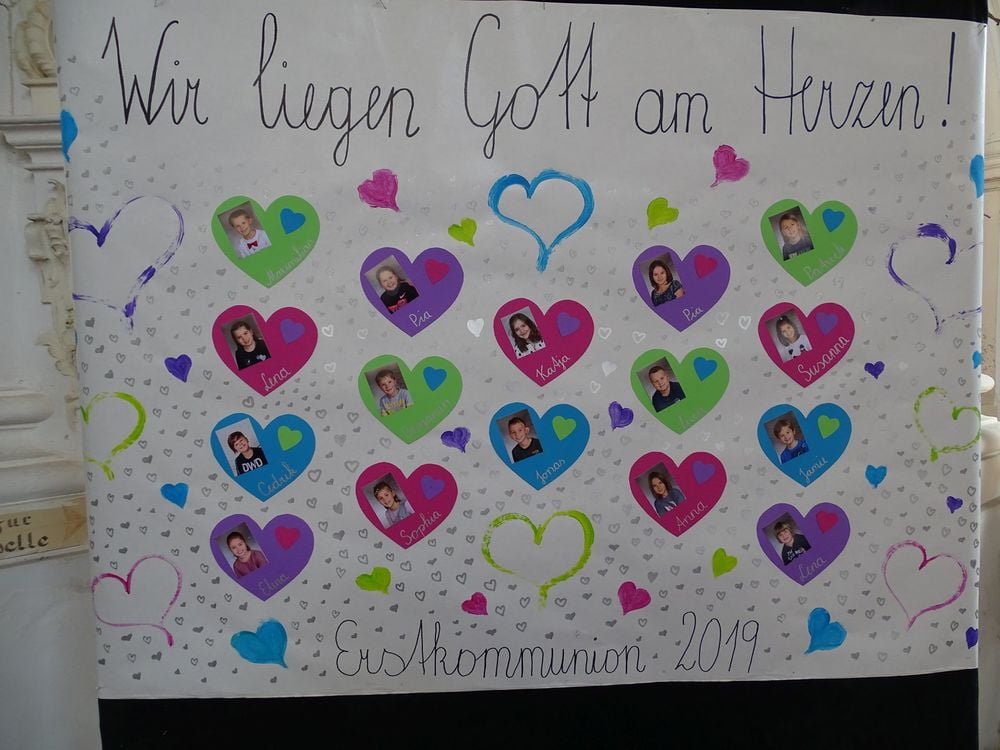 Wir liegen Gott am Herzen!
Maximilian
Patrick
Pia
Pia
Lena
Katja
Susanna
Benjamin
Cedrik
Jonas
Jamie
DWD
Sophia
Anna
Elina
Lena
Erstkommunion 2019
elle